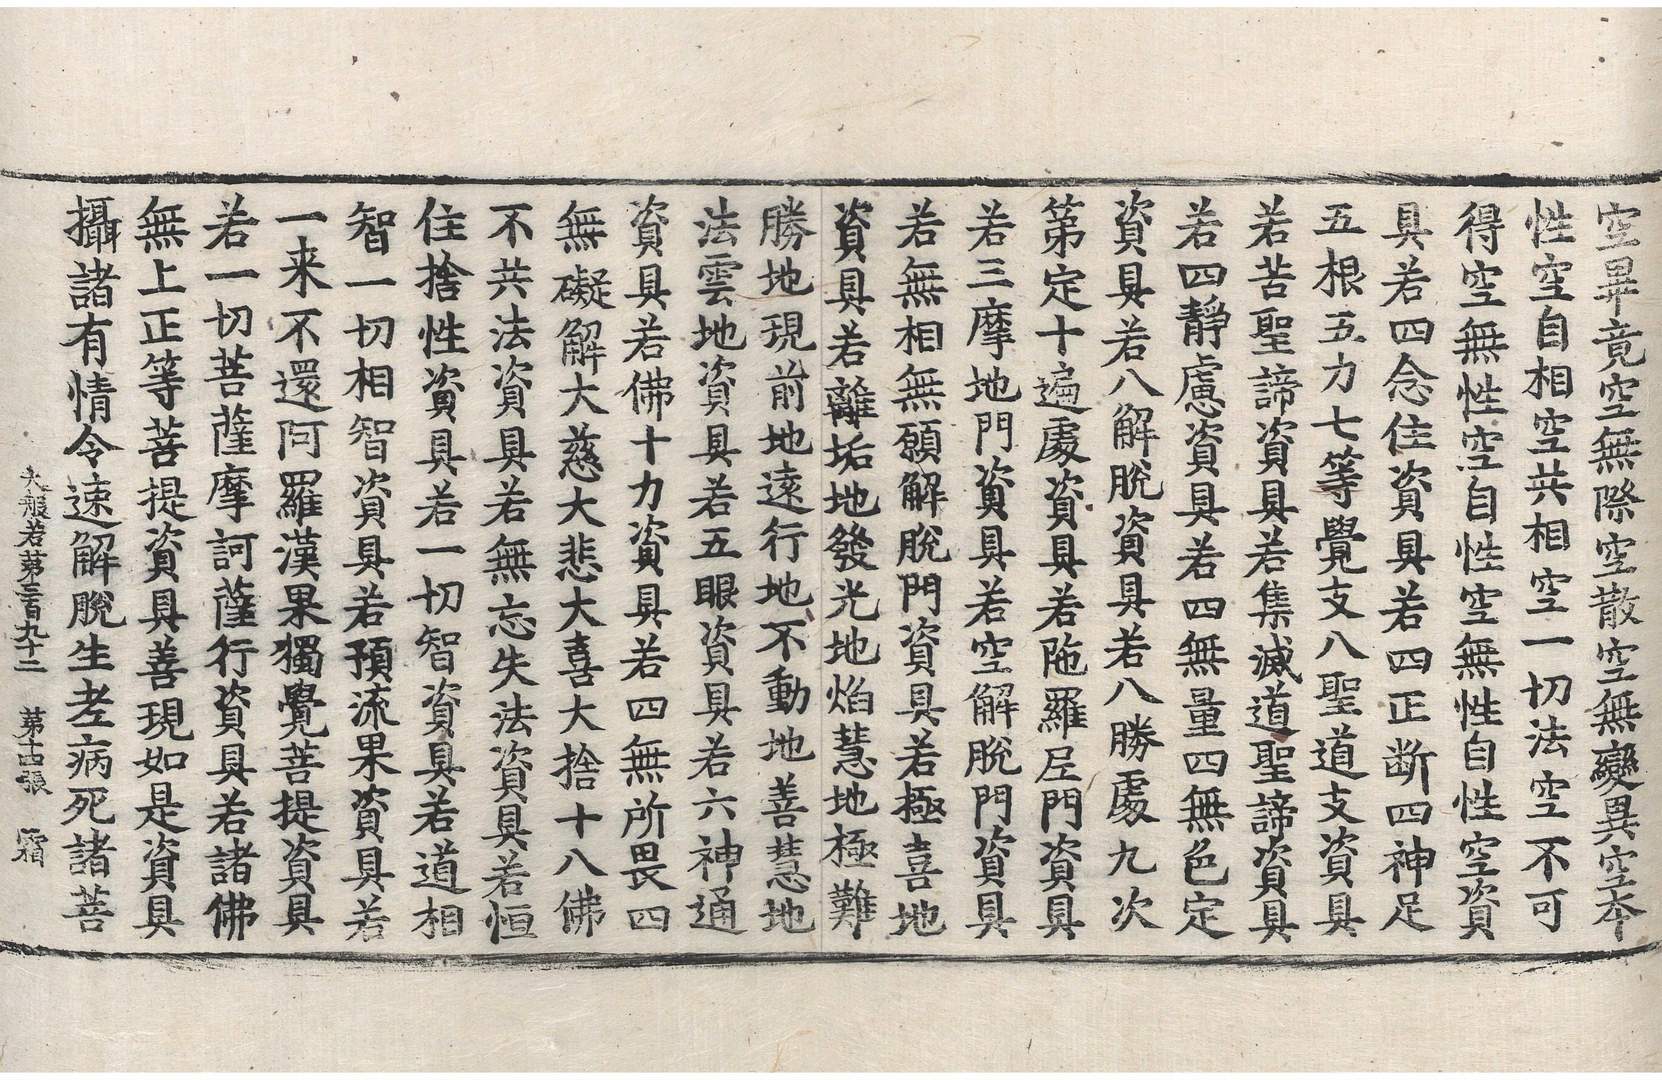 空畢竟空無際空散空無變異空本
性空自相空共相空一切法空不可
得空無性空自性空無性自性空資
具若四念住資具若四正断四神足
五根五力七等覺支八聖道支資具
若苦聖諦資具若集滅道聖諦資具
若四靜慮資具若四無量四無色定
資具若八解脫資具若八勝處九次
第定十遍處資具若陁羅尼門資具
若三摩地門資具若空解脫門資具
若無相無願解脫門資具若極喜地
資具若離垢地發光地焰慧地極難
勝地現前地遠行地不動地善慧地
法雲地資具若五眼資具若六神通
資具若佛十力資具若四無所畏四
無礙解大慈大悲大喜大捨十八佛
不共法資具若無忘失法資具若恒
住捨性資具若一切智資具若道相
智一切相智資具若預流果資具若
一来不還阿羅漢果獨覺菩提資具
若一切菩薩摩訶薩行資具若諸佛
無上正等菩提資具善現如是資具
攝諸有情令速解脫生老病死諸菩
大般若第三百九十二　第十四張　霜